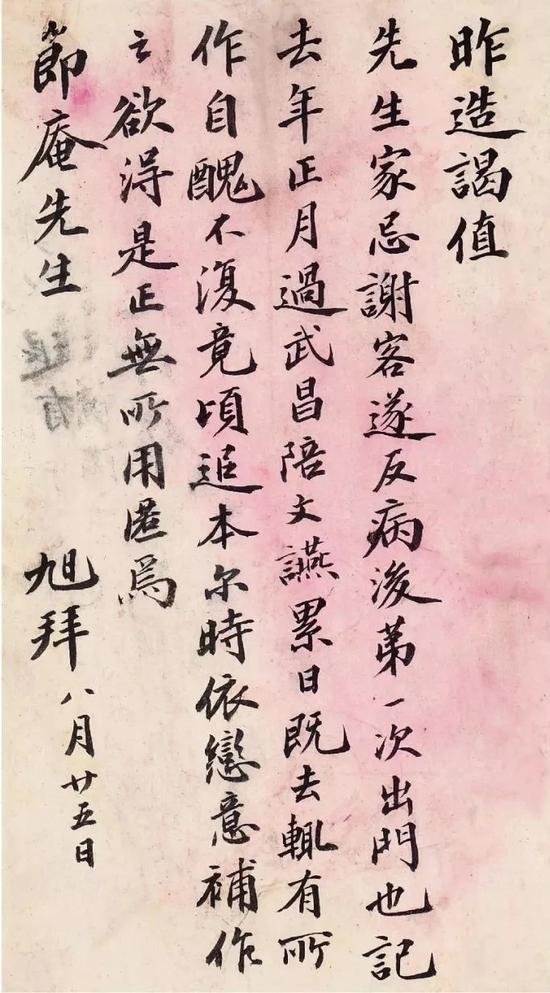 昨造謁值
先生家忌謝客遂反病後苐一次出門也記
去年正月過武昌陪文讌累日既去輒有所
作自醜不復竟頃追本尔時依戀意補作
之欲得是正無所用匿焉
節庵先生
旭拜 八月廿五日